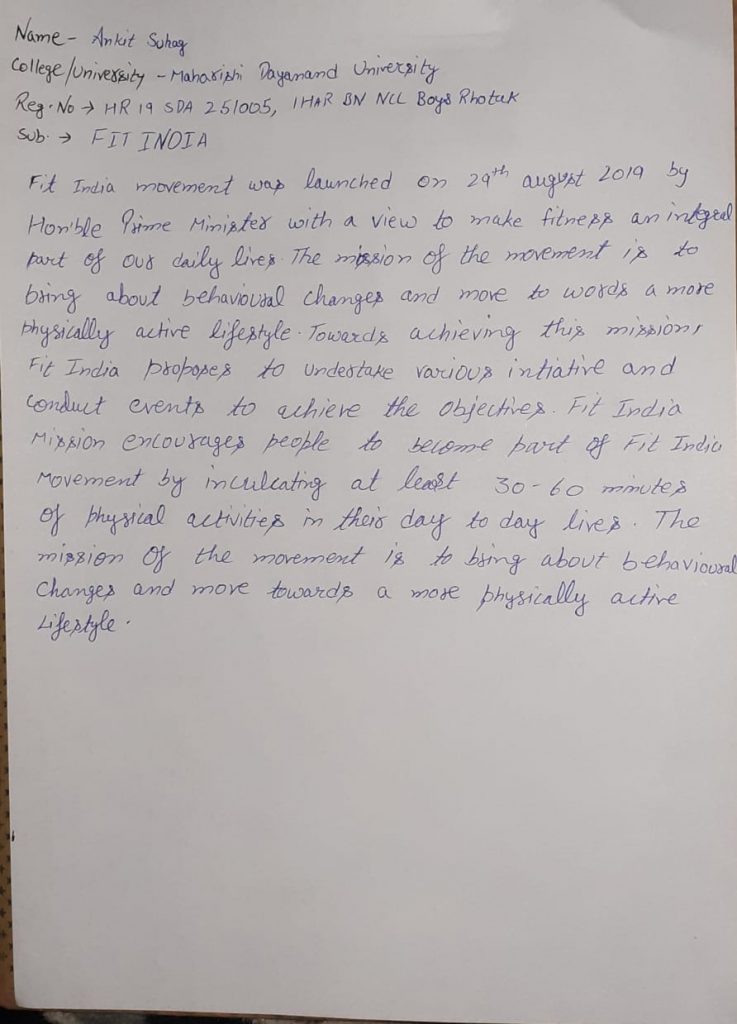 Name - Ankit Suhag
College/University - Maharishi Dayanand University
Reg. No → HR 19 SDA 251005, 1HAR BN NCC Boys Rhotak
Sub. → FIT INDIA
Fit India movement was launched on 29th august 2019 by
Hon'ble Prime Minister with a view to make fitness an integral
part of our daily lives. The mission of the movement is to
bring about behavioural changes and move to words a more
physically active lifestyle. Towards achieving this missions,
Fit India proposes to undertake various intiative and
conduct events to achieve the objectives. Fit India
Mission encourages people to become part of Fit India
Movement by inculcating at least 30-60 minutes
of physical activities in their day to day lives. The
mission of the movement is to bring about behavioural
Changes and move towards a more physically active
Lifestyle.